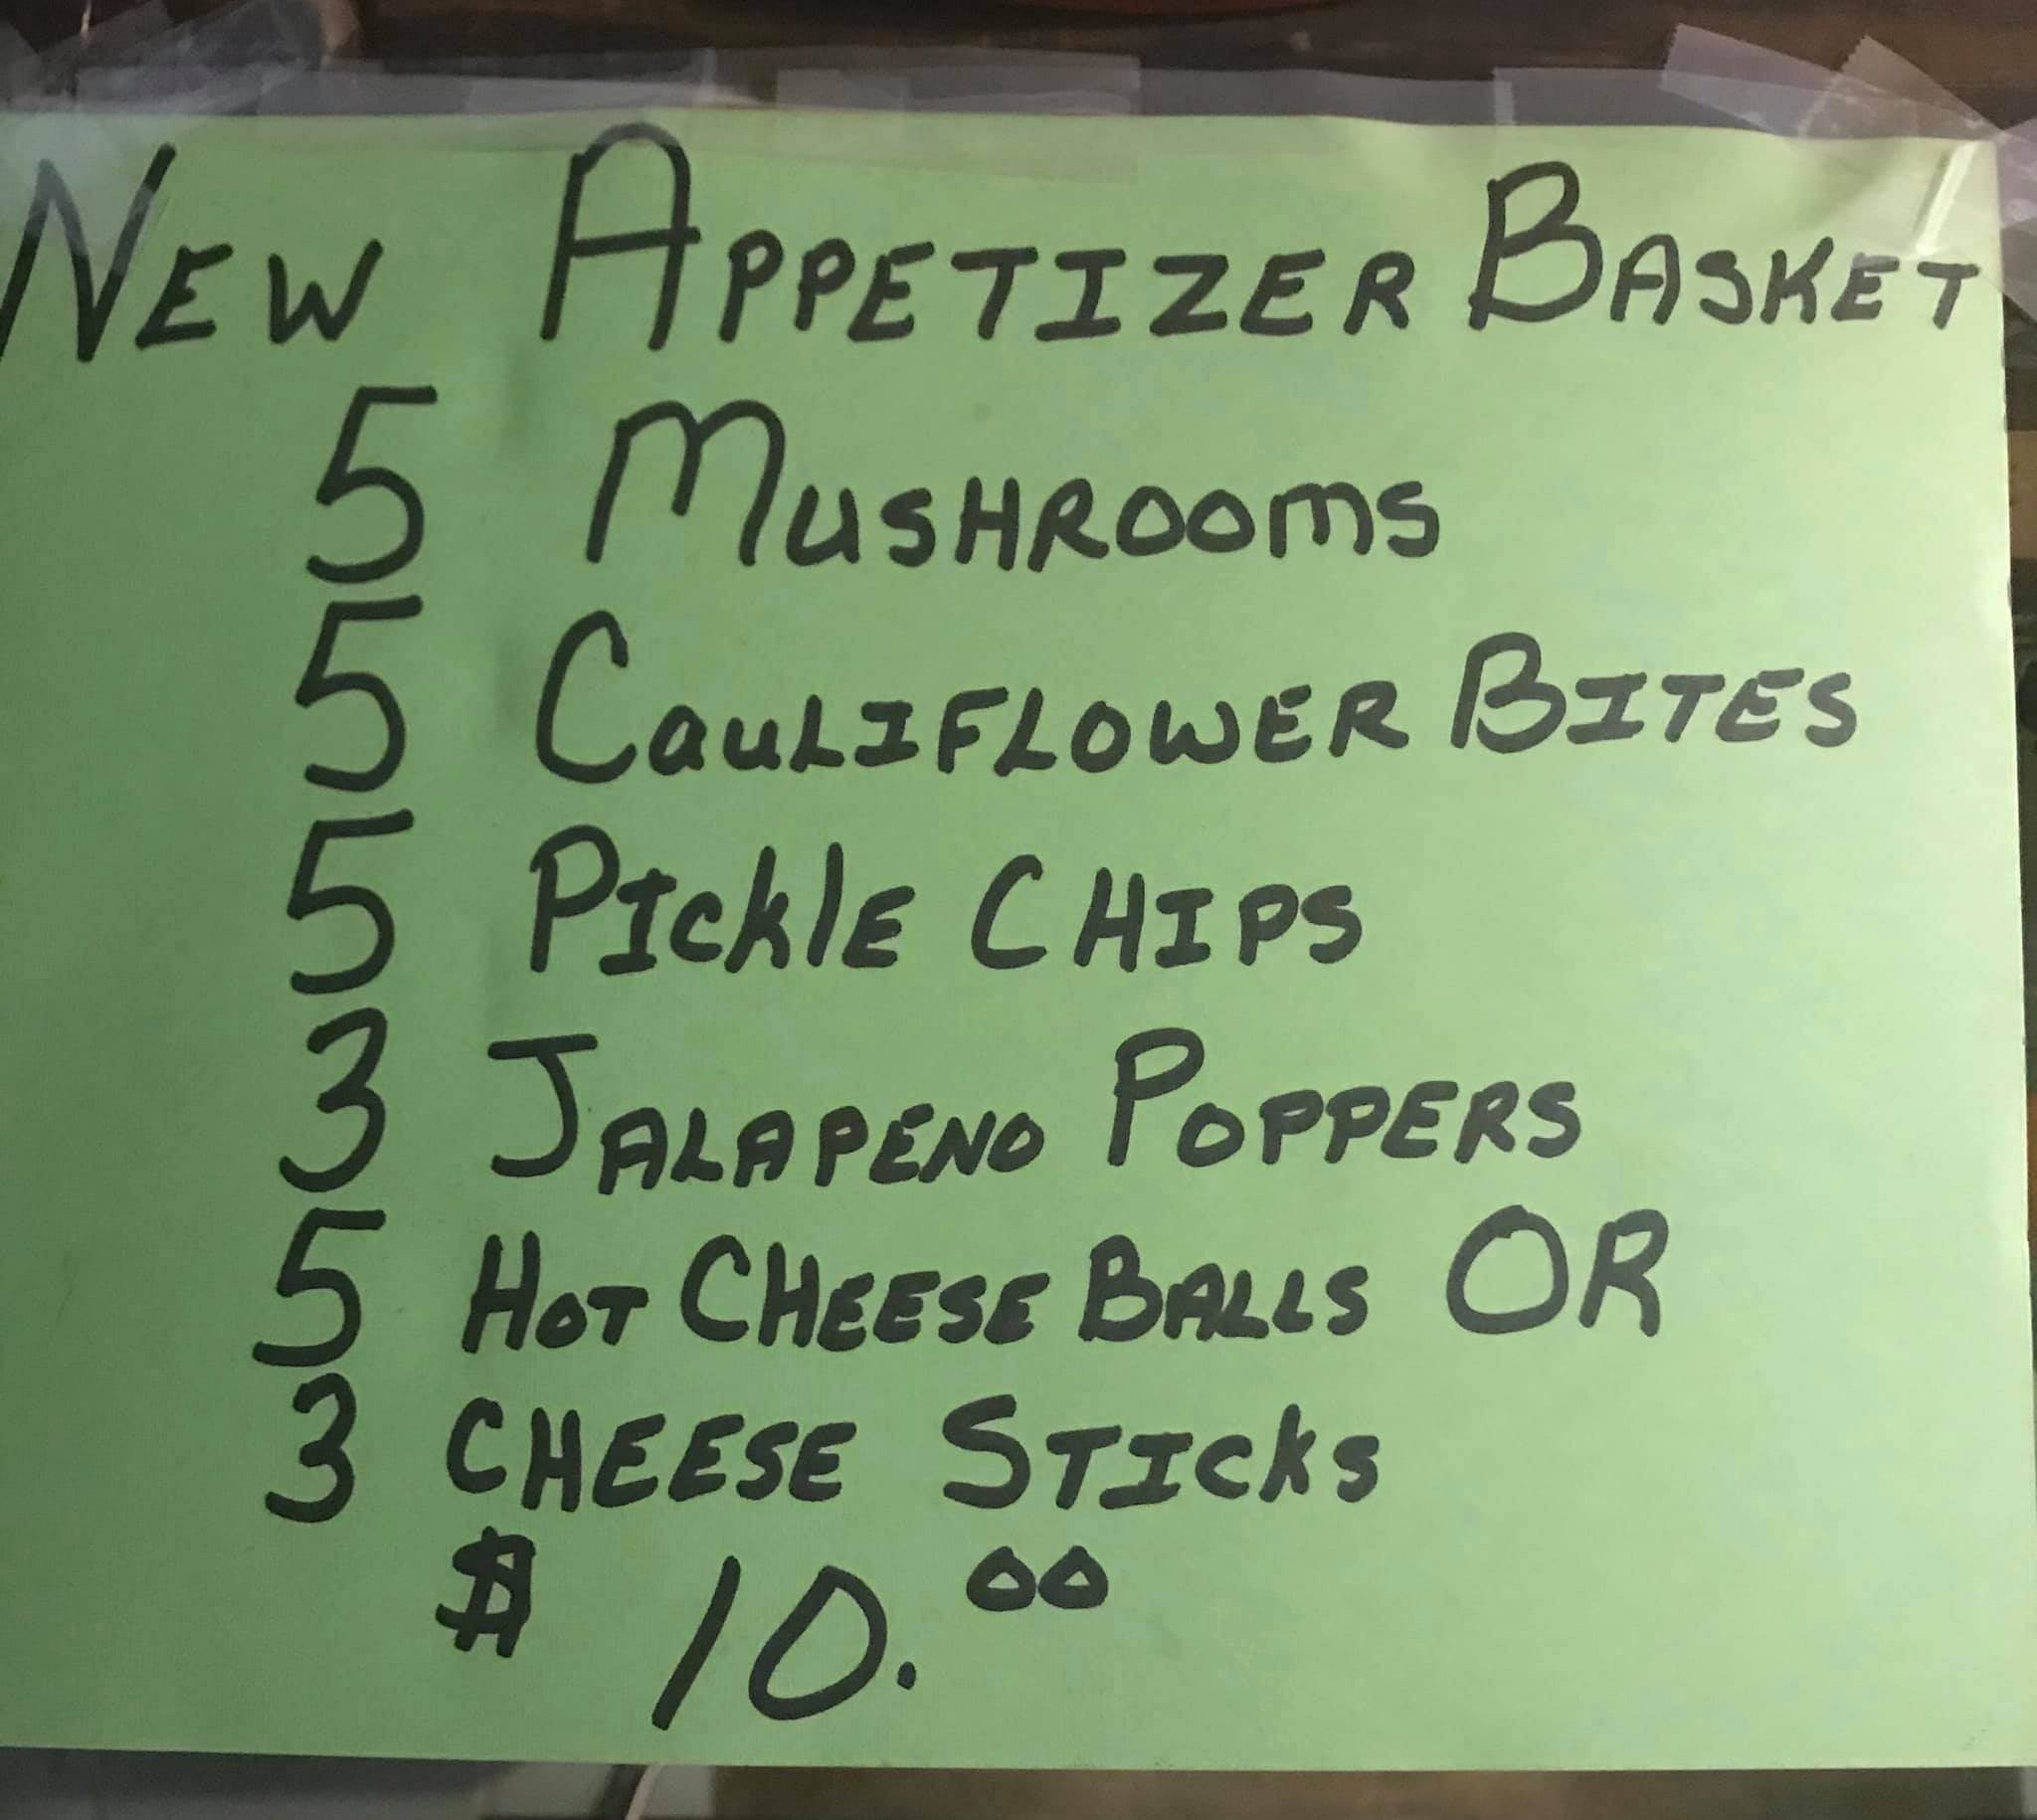 New Appetizer Basket
5 Mushrooms
5 Cauliflower Bites
5 Pickle Chips
3 Jalapeno Poppers
5 Hot Cheese Balls OR
3 Cheese Sticks
$ 10.00